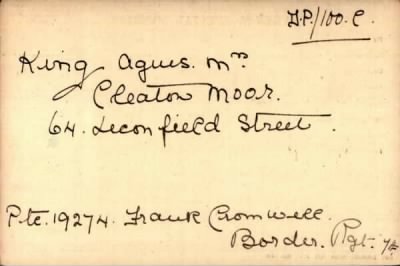 D.P./100.C.
King Agnes. Mrs
Cleator Moor.
64. Leconfield Street.
Pte. 19274. Frank Cromwell.
Border. Rgt.